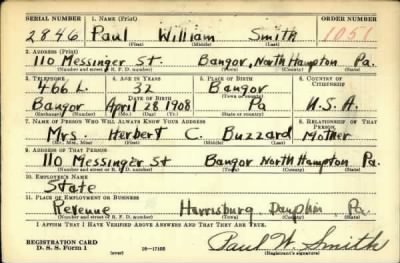 SERIAL NUMBER 1. NAME (Print) ORDER NUMBER
2846 Paul William Smith 1051
(First) (Middle) (Last)
2. ADDRESS (Print)
110 Messinger St. Bangor, North Hampton Pa.
(Number and street or R. F. D. number) (Town) (County) (State)
3. TELEPHONE 4. AGE IN YEARS 5. PLACE OF BIRTH 6. COUNTRY OF CITIZENSHIP
466 L. 32 Bangor
DATE OF BIRTH (Town or county)
Bangor April 28 1908 Pa U.S.A.
(Exchange) (Number) (Mo.) (Day) (Yr.) (State or country)
7. NAME OF PERSON WHO WILL ALWAYS KNOW YOUR ADDRESS 8. RELATIONSHIP OF THAT PERSON
Mrs. Herbert C. Buzzard Mother
(Mr., Mrs., Miss) (First) (Middle) (Last)
9. ADDRESS OF THAT PERSON
110 Messinger St Bangor North Hampton Pa.
(Number and street or R. F. D. number) (Town) (County) (State)
10. EMPLOYER'S NAME
State
11. PLACE OF EMPLOYMENT OR BUSINESS
Revenue Harrisburg Dauphin Pa.
(Number and street or R. F. D. number) (Town) (County) (State)
I AFFIRM THAT I HAVE VERIFIED ABOVE ANSWERS AND THAT THEY ARE TRUE.
REGISTRATION CARD
D. S. S. Form 1 (over) 16—17105 Paul W. Smith
(Registrant's signature)